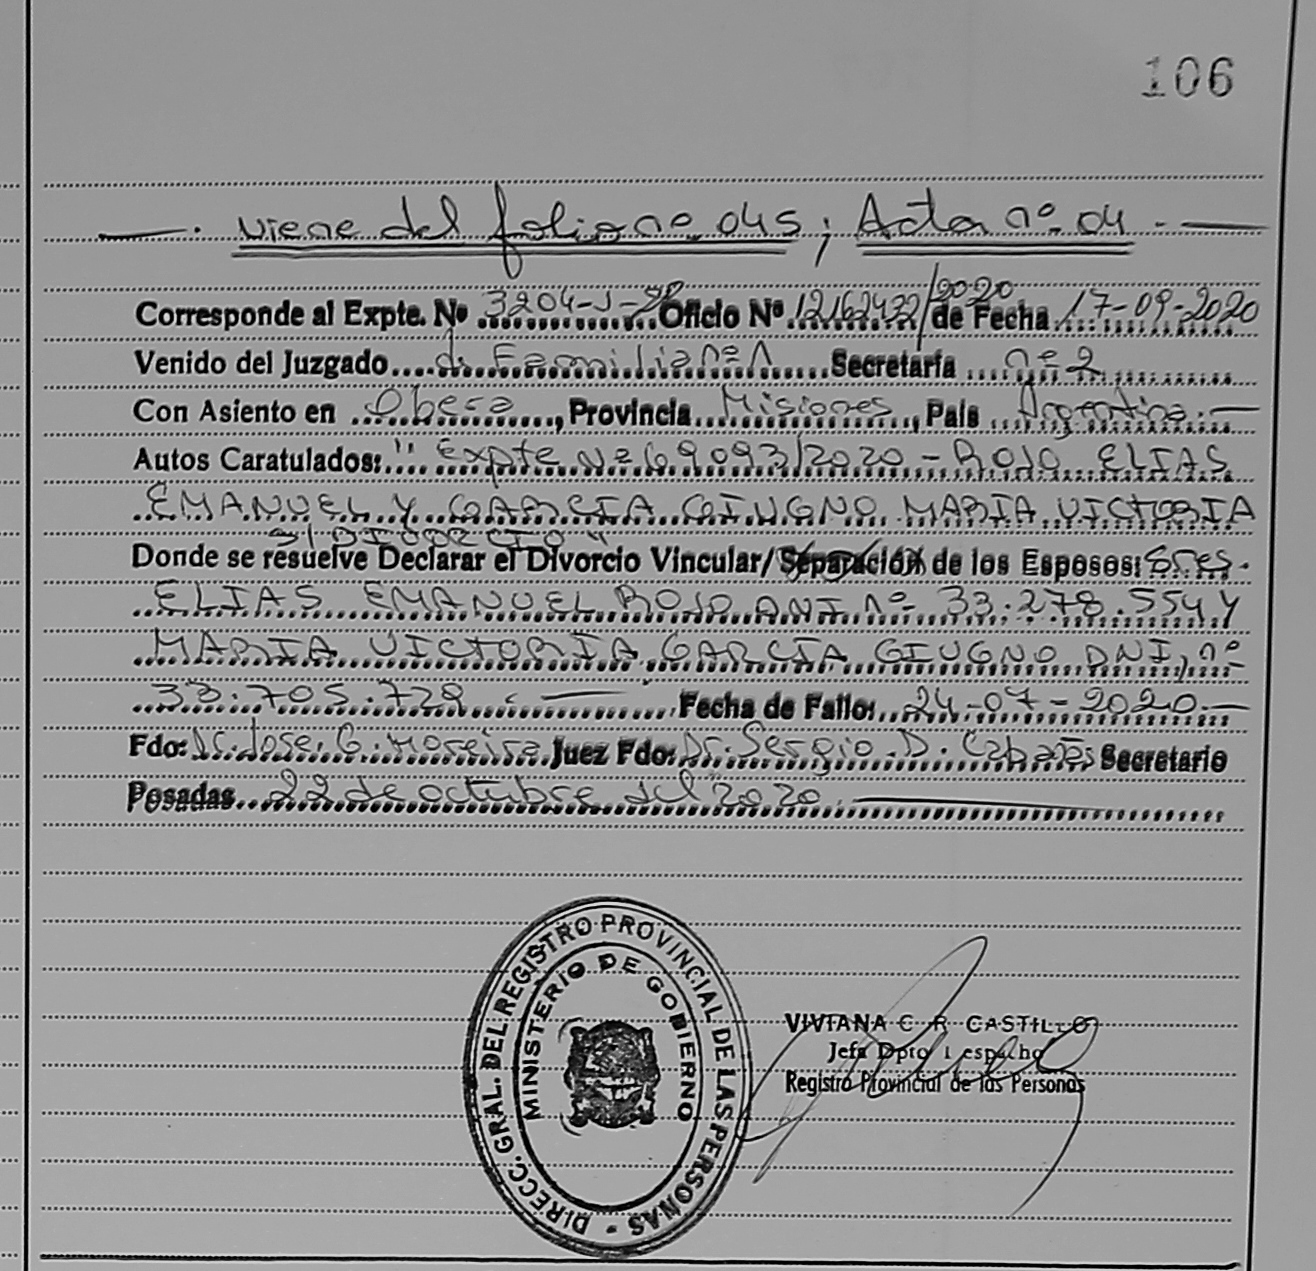 106
Viene del folio nº 045; Acta nº 04
Corresponde al Expte. Nº 3204-J-20 Oficio Nº 12162432/2020 de Fecha 17-09-2020
Venido del Juzgado de Familia nº 1 Secretaría nº 2
Con Asiento en Obera, Provincia Misiones, País Argentina
Autos Caratulados: "Expte Nº 69093/2020 - ROJO ELIAS
EMANUEL Y GARCIA GIUGNO MARIA VICTORIA
S/DIVORCIO"
Donde se resuelve Declarar el Divorcio Vincular/Separación de los Esposos: Sres.
ELIAS EMANUEL ROJO DNI nº 33.278.554 Y
MARIA VICTORIA GARCIA GIUGNO DNI nº
33.705.728. Fecha de Fallo: 24-07-2020
Fdo: Dr. Jose G. Moreira Juez Fdo: Dr. Sergio D. Secretario
Posadas 22 de octubre del 2020
DIRECC. GRAL. DEL REGISTRO PROVINCIAL DE LAS PERSONAS
MINISTERIO DE GOBIERNO
VIVIANA C. R. CASTILLO
Jefa Dpto Despacho
Registro Provincial de las Personas